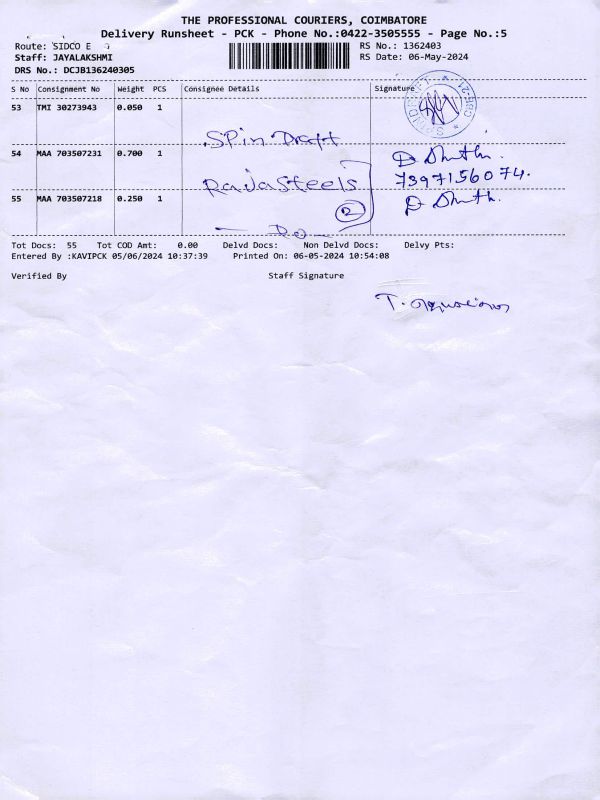 THE PROFESSIONAL COURIERS, COIMBATORE
Delivery Runsheet - PCK - Phone No.:0422-3505555 - Page No.:5
Route: SIDCO E
RS No.: 1362403
Staff: JAYALAKSHMI
RS Date: 06-May-2024
DRS No.: DCJB136240305
S No Consignment No Weight PCS Consignee Details Signature
53 TMI 30273943 0.050 1
Spin Draft
54 MAA 703507231 0.700 1
Rajasteels
7397156074.
2
55 MAA 703507218 0.250 1
Tot Docs: 55 Tot COD Amt: 0.00 Delvd Docs: Non Delvd Docs: Delvy Pts:
Entered By :KAVIPCK 05/06/2024 10:37:39 Printed On: 06-05-2024 10:54:08
Verified By Staff Signature